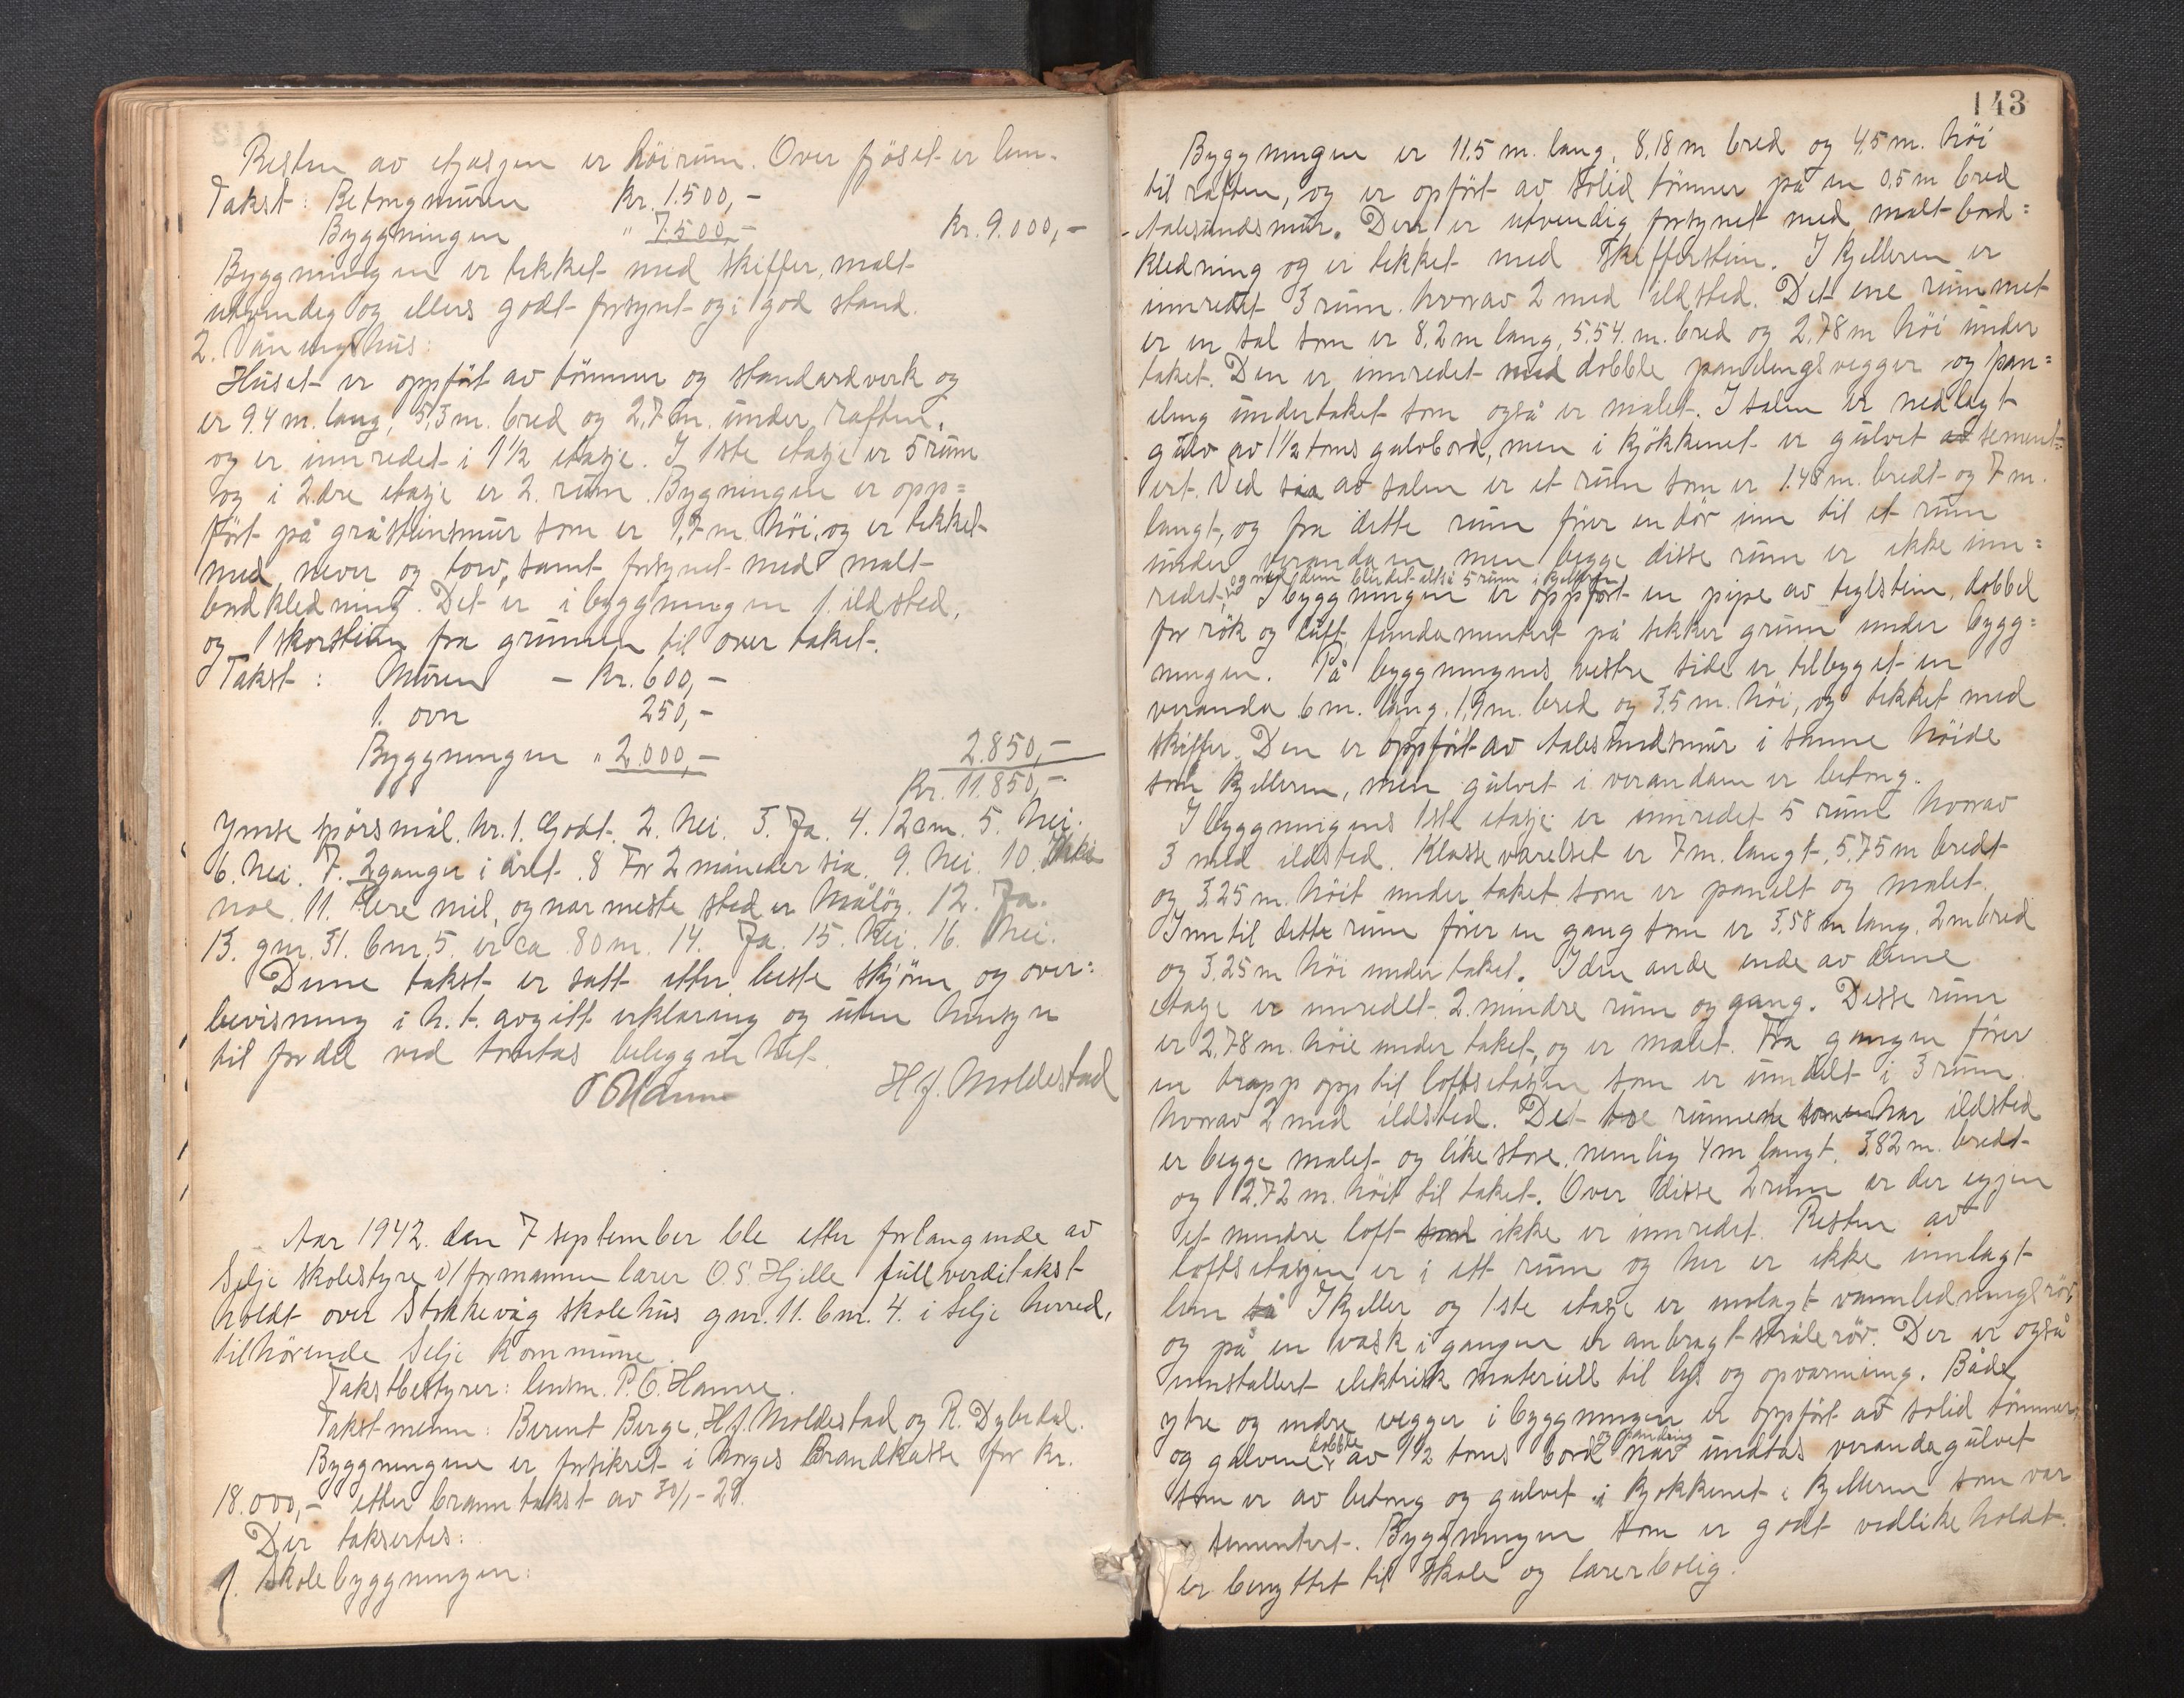 Resten av etasjen er höirum. Over fjöset er lem.
Takst: Betongmuren Kr. 1.500,-
Byggningen " 7.500,- Kr. 9.000,-
Byggningen er tekket med skiffer, malt
utvendig og ellers godt forsynt og i god stand.
2. Våningshus:
Huset er oppfört av tömmer og standardverk og
er 9.4 m. lang, 5,3 m. bred og 2,76m. under raften,
og er innredet i 1½ etasje. I 1ste etasje er 5 rum
og i 2dre etasje er 2. rum. Bygningen er opp=
fört på gråsteinsmur som er 1,7 m. höi, og er tekket
med never og torv, samt forsynet med malt
bordkledning. Det er i byggningen 1. ildsted,
og 1 skorstein fra grunnen til over taket.
Takst: Muren - Kr. 600,-
1. ovn 250,-
Byggningen " 2.000,- 2.850,-
Kr. 11.850,-
Ymse spörsmål. Nr. 1. Godt. 2. Nei. 3. Ja. 4. 12 cm. 5. Nei.
6. Nei. 7. 2 ganger i året. 8 For 2 måneder sia. 9. Nei. 10. Ikke
noe. 11. Flere mil, og nærmeste sted er Måløy. 12. Ja.
13. gnr. 31. bnr. 5. er ca. 80 m. 14. Ja. 15. Nei. 16. Nei.
Denne takst er satt etter beste skjönn og over=
bevisning i h.t. avgitt erklæring og uten hensyn
til fordel ved tomtas beliggenhet.
P O Hamre H J. Moldestad
Aar 1942. den 7 september ble etter forlangende av
Selje skolestyre v/ formannen lærer O. S. Hjelle fullverditakst
holdt over Stokkevåg skolehus gnr. 11. bnr. 4. i Selje herred,
tilhörende Selje kommune.
Takstbestyrer: lensm. P. O. Hamre.
Takstmenn: Berent Berge, H. J. Moldestad og R. Dybedal.
Byggningene er forsikret i Norges Brandkasse for kr.
18.000,- etter branntakst av 30/1-29.
Der taksertes:
1. Skolebyggningen:
143
Byggningen er 11.5 m. lang, 8,18 m bred og 4.5 m. höi
til raften, og er opfört av solid tömmer på en 0.5 m bred
Aalesundsmur. Den er utvendig forsynet med malt bord=
kledning og er tekket med skifferstein. I kjelleren er
innredet 3 rum. hvorav 2 med ildsted. Det ene rummet
er en sal som er 8,2 m lang, 5,54. m. bred og 2,78 m höi under
taket. Den er innredet med dobble panelingsvegger og pan=
eling under taket som også er malet. I salen er nedlagt
gulv av 1½ toms gulvbord, men i kjökkenet er gulvet av sement=
ert. Ved sia av salen er et rum som er 1.48 m. bredt og 7 m.
langt, og fra dette rum förer en dör inn til et rum
under verandaen men begge disse rum er ikke inn=
redet, og med dem blir det altså 5 rum i kjelleren I byggningen er oppfört en pipe av teglstein, dobbel
for rök og luft, fundamentert på sikker grunn under bygg=
ningen. På byggningens vestre side er tilbygget en
veranda 6 m. lang, 1,9 m. bred og 3.5 m. höi, og tekket med
skiffer. Den er oppfört av Aalesundsmur i samme höide
som kjelleren, men gulvet i verandaen er betong.
I byggningens 1ste etasje er innredet 5 rum hvorav
3 med ildsted. Klasseværelset er 7 m. langt, 5,75 m bredt
og 3,25 m. höit under taket som er panelt og malet.
Inn til dette rum förer en gang som er 3,58 m lang, 2 m bred
og 3.25 m höi under taket. I den ande ende av denne
etasje er innredet 2. mindre rum og gang. Disse rum
er 2,78 m. höie under taket, og er malet. Fra gangen förer
en trapp opp til loftsetasjen som er inndelt i 3 rum,
hvorav 2 med ildsted. De to rummene som har ildsted
er begge malet og like store, nemlig 4 m langt, 3,82 m. bredt
og 2.72 m. höit til taket. Over disse 2 rum er der igjen
et mindre loft som ikke er innredet. Resten av
loftsetasjen er i ett rum og her er ikke innlagt
lem så I kjeller og 1ste etasje er innlagt vannledningsrör,
og på en vask i gangen er anbragt strålerör. Der er også
innstallert elektrisk materiell til lys og opvarming. Både
ytre og indre vegger i byggningen er oppfört av solid tömmer,
og gulvene dobble av 1½ toms bord og paneling når undtas verandagulvet
som er av betong og gulvet i kjökkenet i kjelleren som var
sementert. Byggningen som er godt vedlikeholdt
er benyttet til skole og lærerbolig.